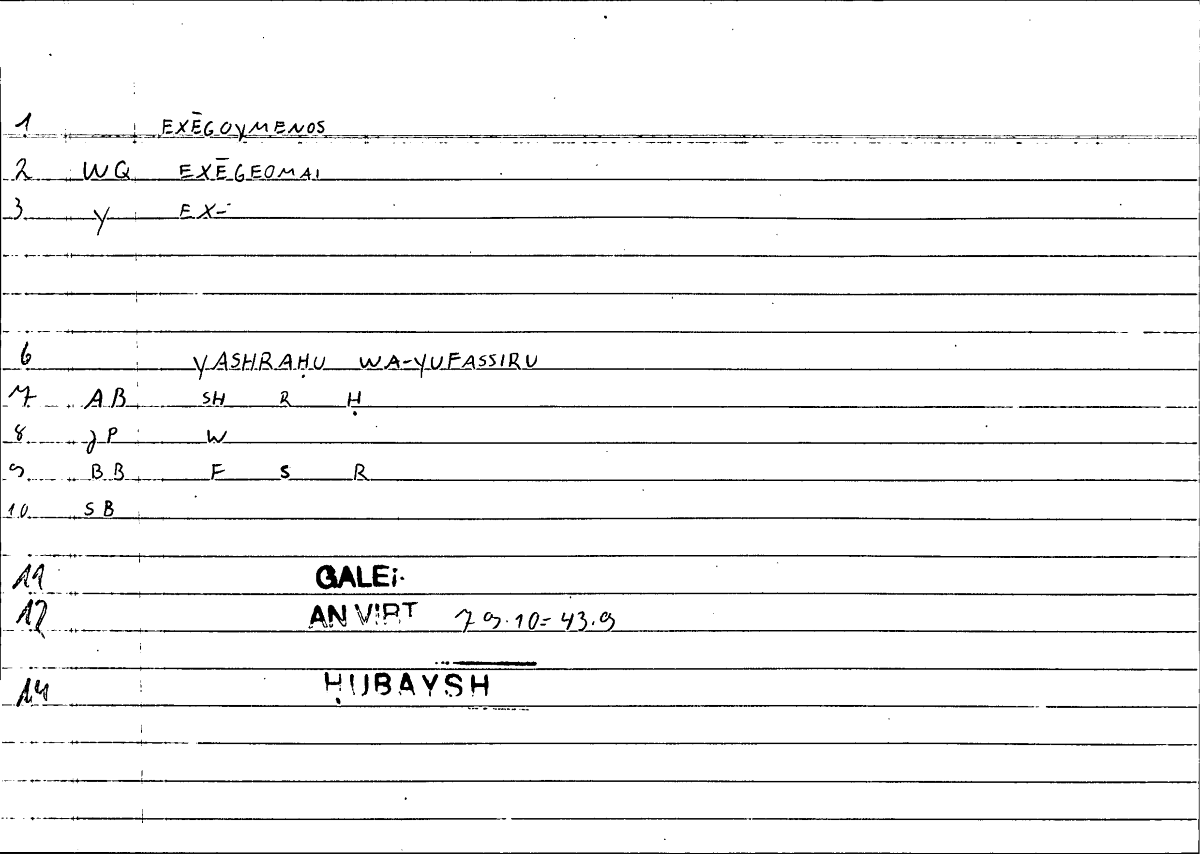 1 EXĒGOYMENOS
2 WQ EXĒGEOMAI
3 Y EX-
6 YASHRAḤU WA-YUFASSIRU
7 AB SH R Ḥ
8 JP W
9 BB F S R
10 SB
11 GALEi.
12 AN VIRT 79.10=43.9
14 ḤUBAYSH